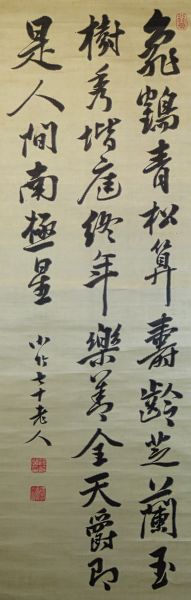 龜鶴青松算壽齡芝蘭玉
樹秀堦庭終年樂善全天爵即
是人間南極星
七十老人